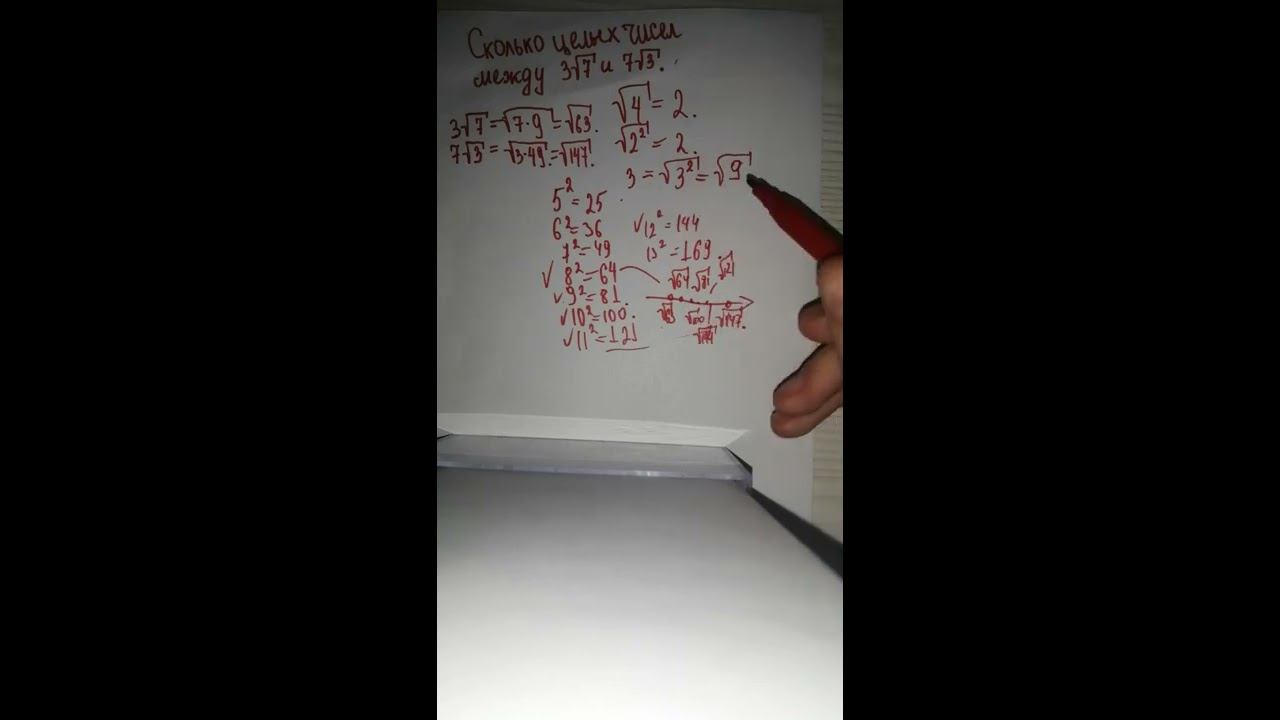 Сколько целых чисел
между 3√7 и 7√3.
3√7 = √7·9 = √63.
7√3 = √3·49 = √147.
√4 = 2.
√2² = 2.
3 = √3² = √9
5² = 25
6² = 36
7² = 49
√ 8² = 64
√ 9² = 81.
√ 10² = 100.
√ 11² = 121
√ 12² = 144
13² = 169.
√64 √81 √121
√63 √100 √147.
√144